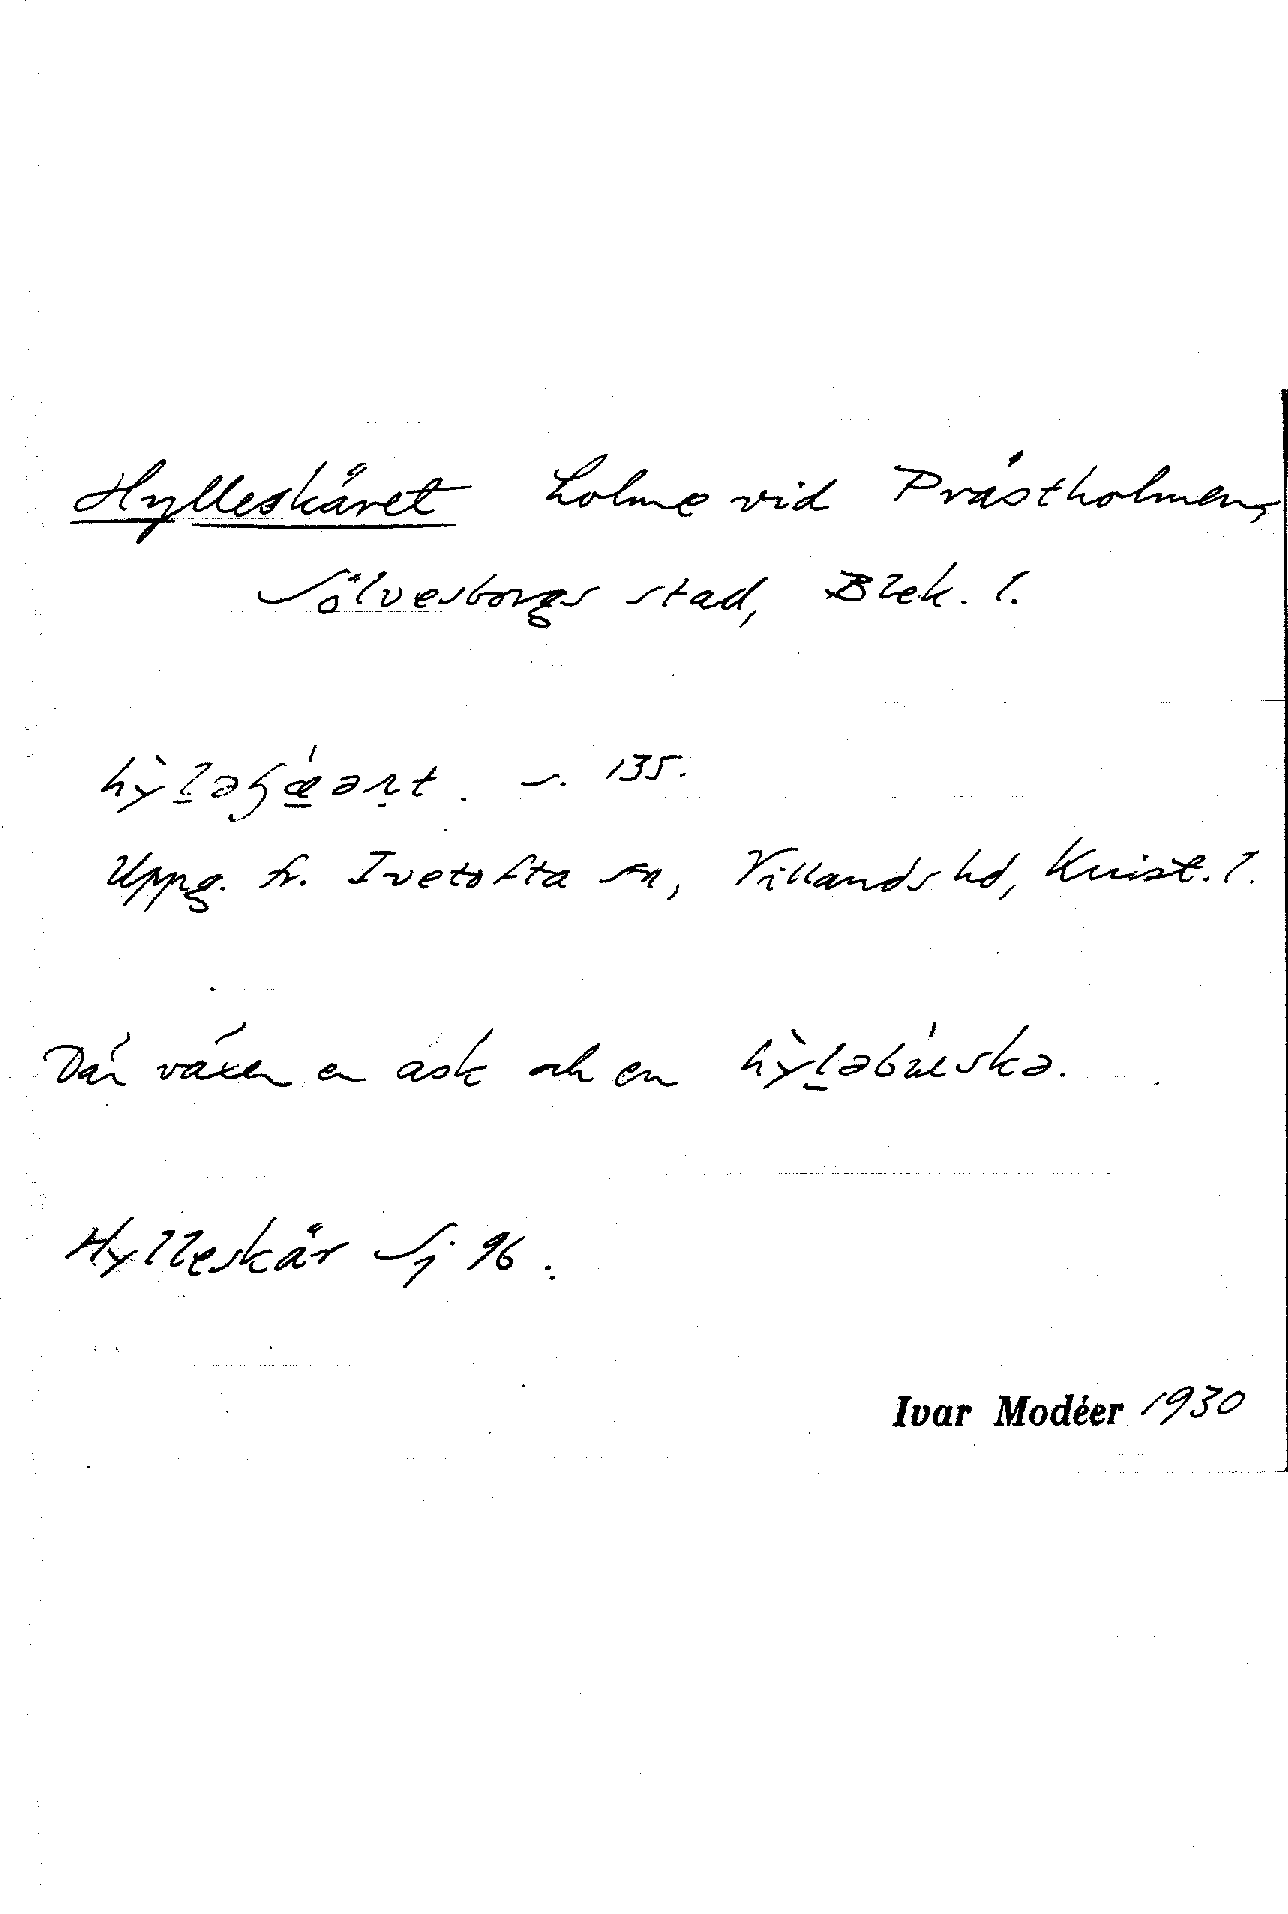 Hylleskäret holme vid Prästholmen,
Sölvesborgs stad, Blek. l.
s. 135.
Uppg. fr. Ivetofta sn, Villands hd, Krist. l.
Där växer en ask och en hỳl̠əbúskə.
Hylleskär Sj. 96.
Ivar Modéer 1930